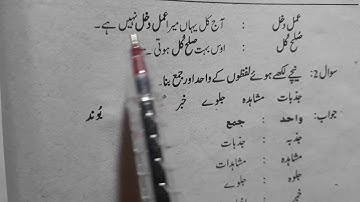 عمل دخل : آج کل یہاں میرا عمل دخل نہیں ہے۔
صلح کُل : اوس بہت صلح کُل ہوتی
سوال 2: نیچے لکھے ہوئے لفظوں کے واحد اور جمع بنا۔
جذبات مشاہدہ جلوے خبر بُوند
جواب: واحد : جمع
جذبہ : جذبات
مشاہدہ : مشاہدات
جلوہ : جلوے